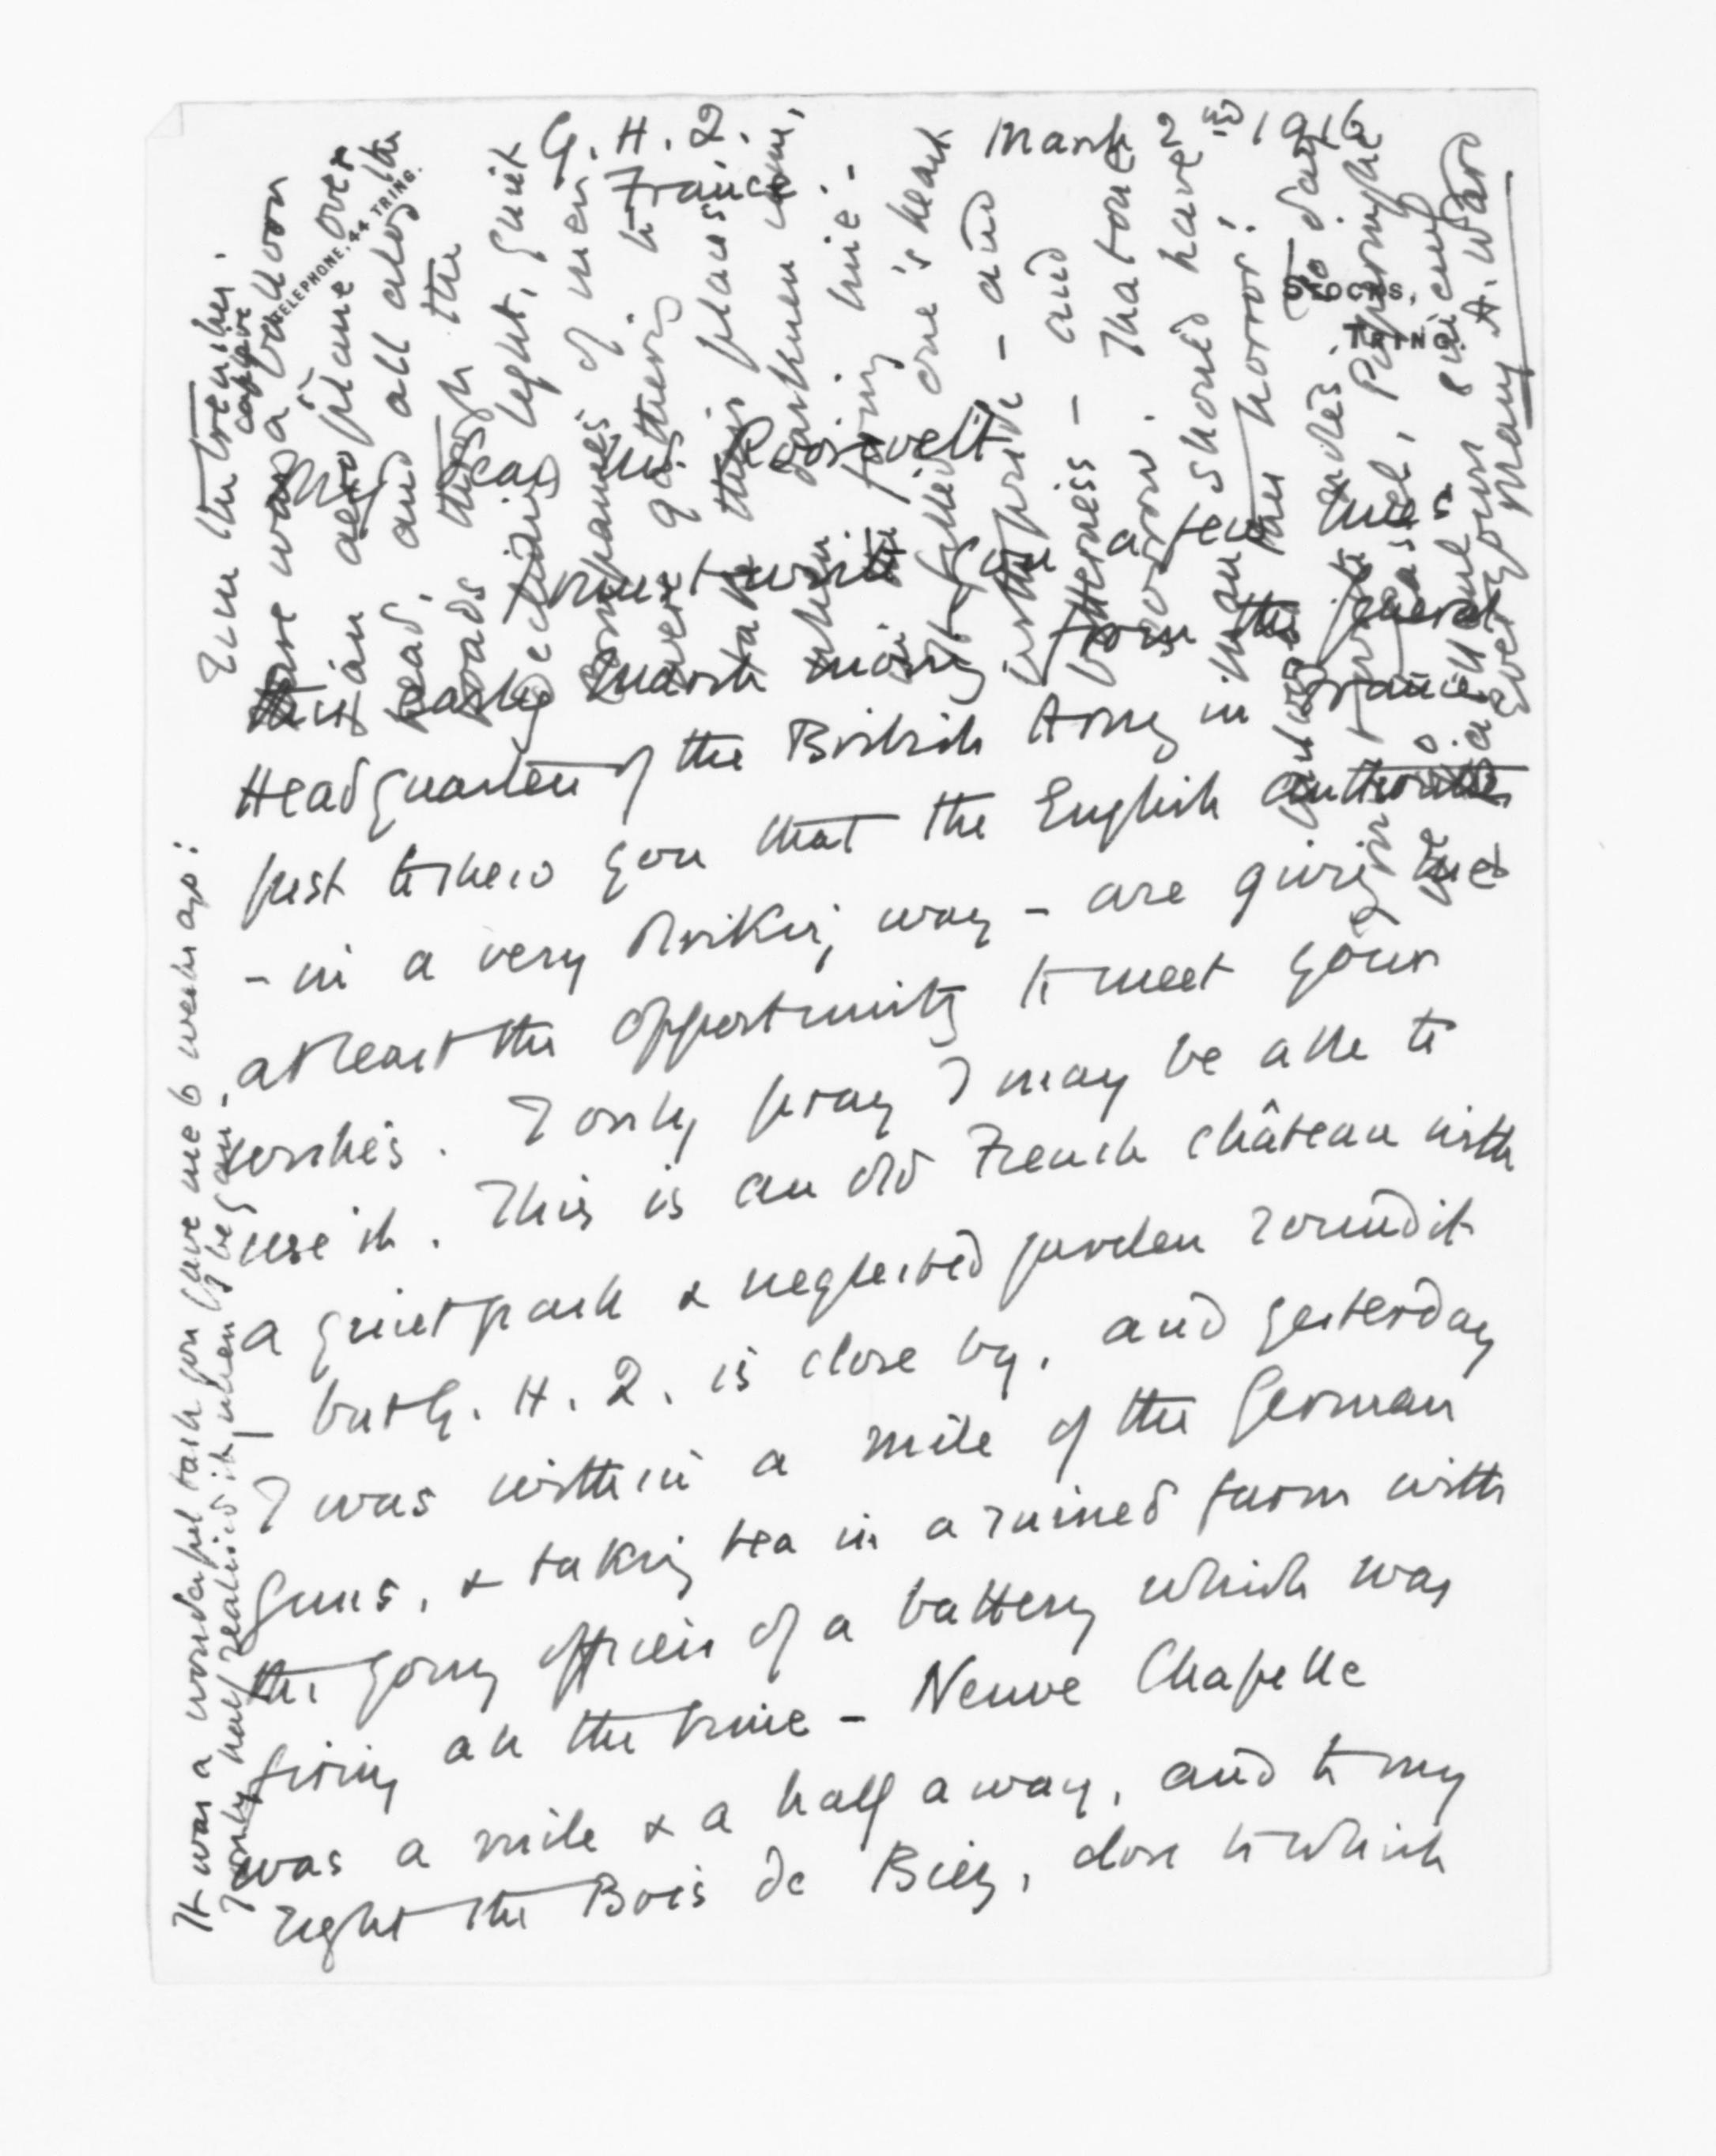 G. H. Q.
France.
March 2nd 1916
TELEPHONE. 44 TRING.
STOCKS,
TRING.
My dear Mr. Roosevelt
I must write you a few lines
this early March morning from the General
Headquarters of the British Army in France
just to shew you that the English authorities
- in a very striking way - are giving me
at least the opportunity to meet your
wishes. I only pray I may be able to
use it. This is an old French château with
a quiet park & neglected garden round it
but G. H. Q. is close by, and yesterday
I was within a mile of the German
guns, & taking tea in a ruined farm with
the young officers of a battery which was
firing all the time - Neuve Chapelle
was a mile & a half away, and to my
right the Bois de Biez, close to which
run the trenches.
There was a captive balloon
& an aeroplane over
head, and all along the
roads through the
declining light, quiet
companies of men
were gathering to
take their places
when darkness came,
in the firing line. -
It filled one's heart
with pride - and
bitterness - and
sorrow. That one
man should have
horror! To day
miles
Poperinghe
Ever yours
Mary A. Ward
It was a wonderful task you gave me 6 weeks ago:
I only half realised it when I began -